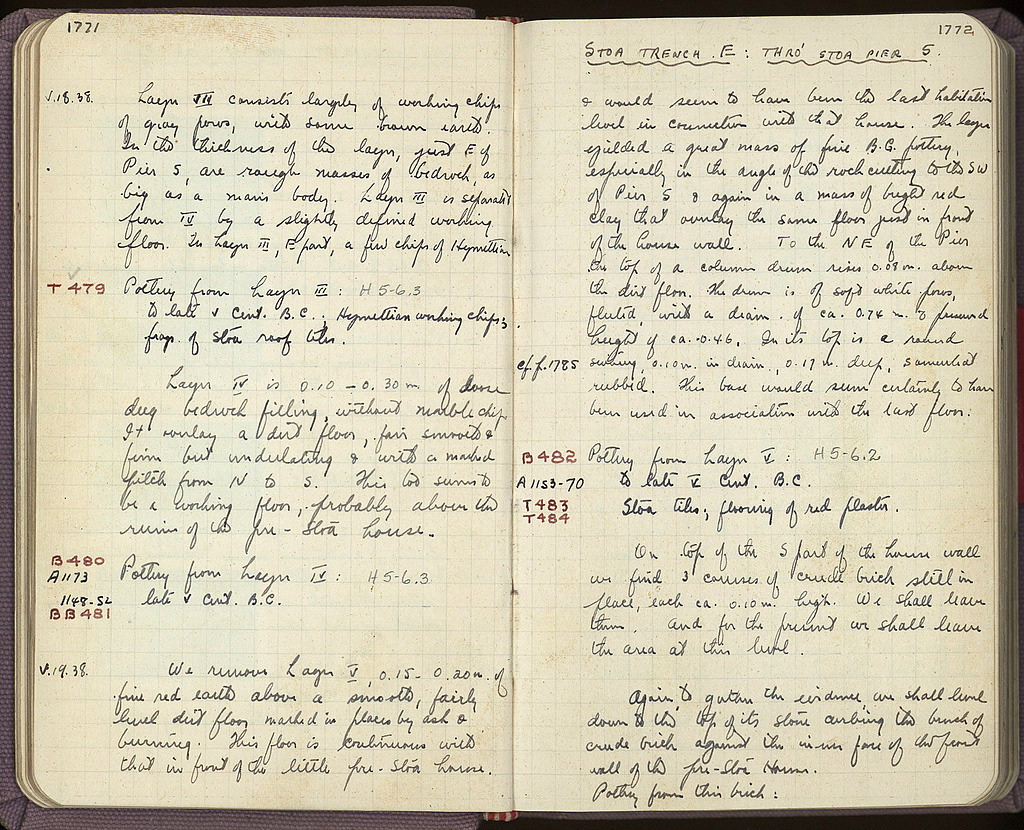 1771
V.18.38. Layer III consists largely of working chips
of gray poros, with some brown earth.
In the thickness of the layer, just E of
Pier 5, are rough masses of bedrock, as
big as a man's body. Layer III is separated
from IV by a slightly defined working
floor. In Layer III, E part, a few chips of Hymettian
T 479 Pottery from Layer III: H 5-6.3
to late V cent. B.C.; Hymettian working chips;
frags. of Stoa roof tiles.
Layer IV is 0.10 – 0.30 m. of loose
dug bedrock filling, without marble chip
It overlay a dirt floor, fair smooth &
firm but undulating & with a marked
pitch from N to S. This too seems to
be a working floor, probably above the
ruins of the pre-Stoa house.
B 480
A 1173 Pottery from Layer IV: H 5-6.3
1148-52 late V cent. B.C.
BB 481
V.19.38. We remove Layer V, 0.15 - 0.20 m. of
fine red earth above a smooth, fairly
level dirt floor marked in places by ash &
burning. This floor is continuous with
that in front of the little pre-Stoa house.
1772
STOA TRENCH E: THRO' STOA PIER 5.
& would seem to have been the last habitation
level in connection with that house. The layer
yielded a great mass of fine B.G. pottery,
especially in the angle of the rock cutting to the SW
of Pier 5 & again in a mass of bright red
clay that overlay the same floor just in front
of the house wall. To the NE of the Pier
the top of a column drum rises 0.08 m. above
the dirt floor. The drum is of soft white poros,
fluted, with a diam. of ca. 0.74 m. & preserved
height of ca. 0.46. In its top is a round
cf. p. 1785 sinking, 0.10 m. in diam., 0.17 m. deep, somewhat
rubbed. This base would seem certainly to have
been used in association with the last floor.
B 482 Pottery from Layer V: H 5-6.2
A 1153-70 to late V cent. B.C.
T 483 Stoa tiles; flooring of red plaster.
T 484
On top of the S part of the house wall
we find 3 courses of crude brick still in
place, each ca. 0.10 m. high. We shall leave
them. And for the present we shall leave
the area at this level.
Again, to gather the evidence, we shall level
down to the top of its stone curbing the bench of
crude brick against the inner face of the front
wall of the pre-Stoa House.
Pottery from this brick: